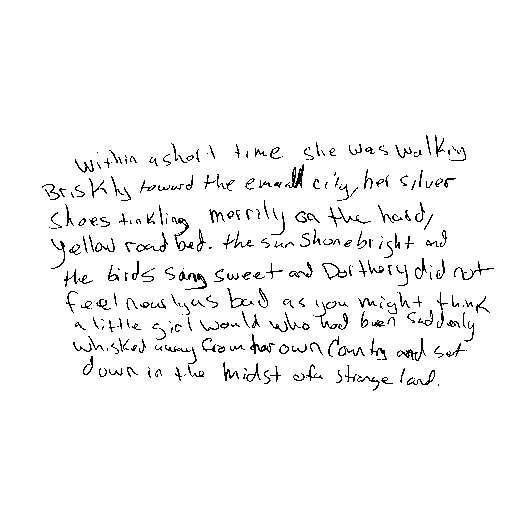 within a short time she was walking
Briskly toward the emerald city, her silver
shoes tinkling merrily on the hard,
yellow road bed. the sun shone bright and
the birds sang sweet and Dorthery did not
feel nearly as bad as you might think
a little girl would who had been suddenly
whisked away from her own Country and set
down in the midst of a strange land.